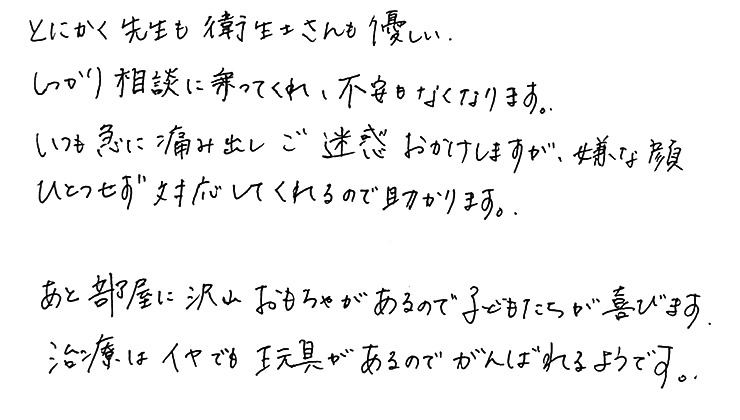 とにかく先生も衛生士さんも優しい.
しっかり相談に乗ってくれ、不安もなくなります。
いつも急に痛み出しご迷惑おかけしますが、嫌な顔
ひとつせず対応してくれるので助かります。
あと部屋に沢山おもちゃがあるので子どもたちが喜びます.
治療はイヤでも玩具があるのでがんばれるようです。